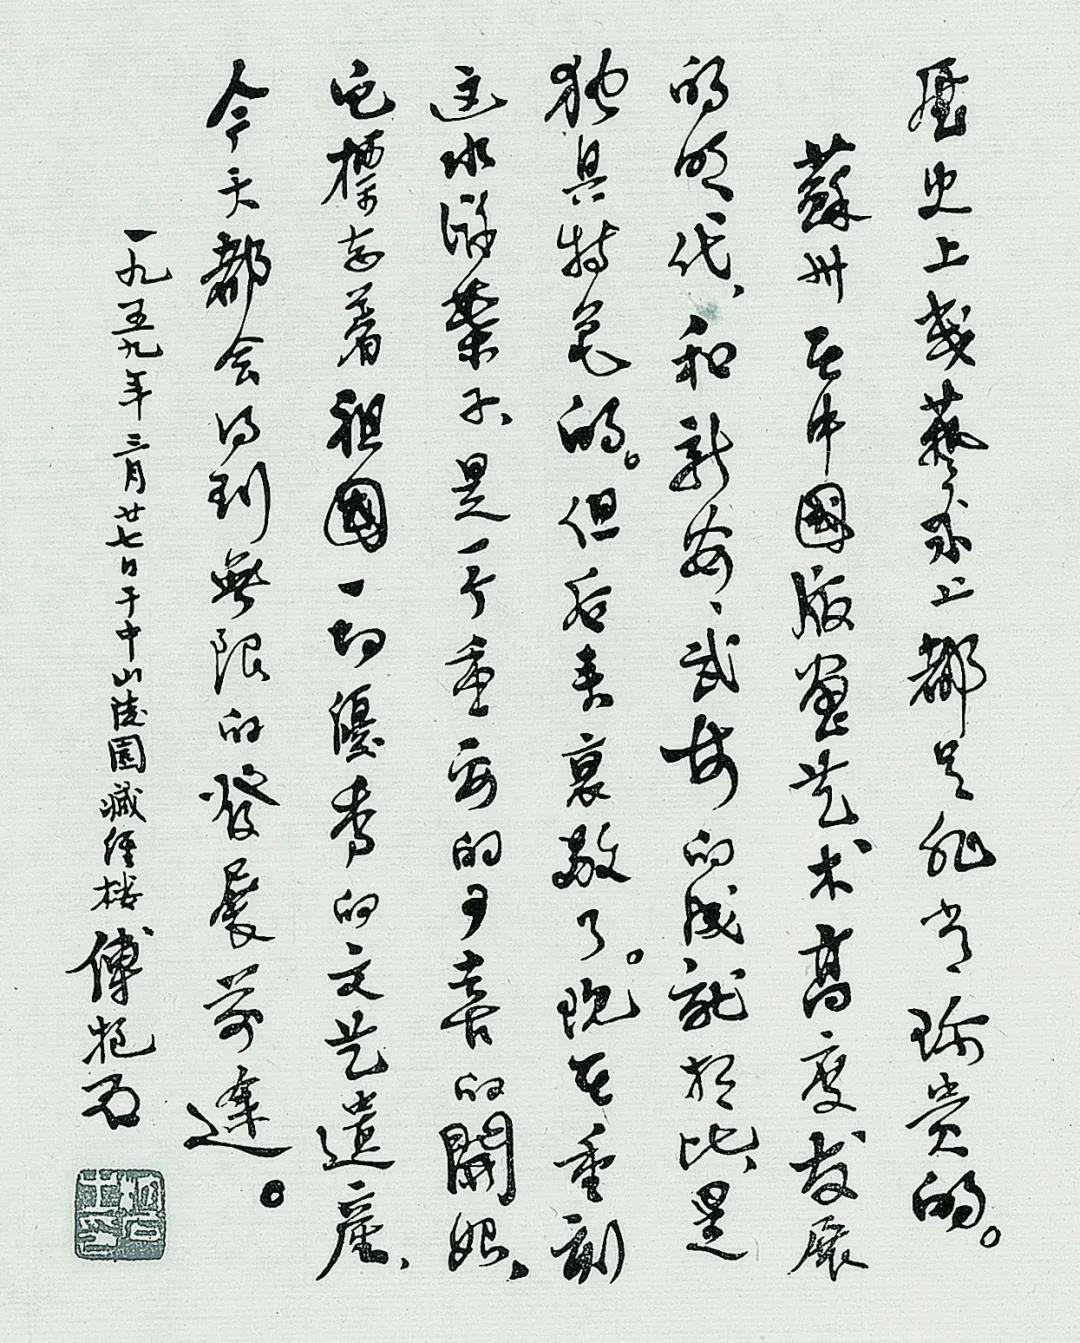 歷史上或藝术上都是非常珍贵的。
蘇州在中國版畫艺术高度发展
的明代、和新安、武林的成就相比、是
独具特色的。但后来衰敝了。现在重刻
这水浒葉子、是一个重要的可喜的開始、
它標志着祖國一切優秀的文艺遗産、
今天都会得到無限的發展前途。
一九五九年三月廿七日于中山陵園藏經楼 傅抱石